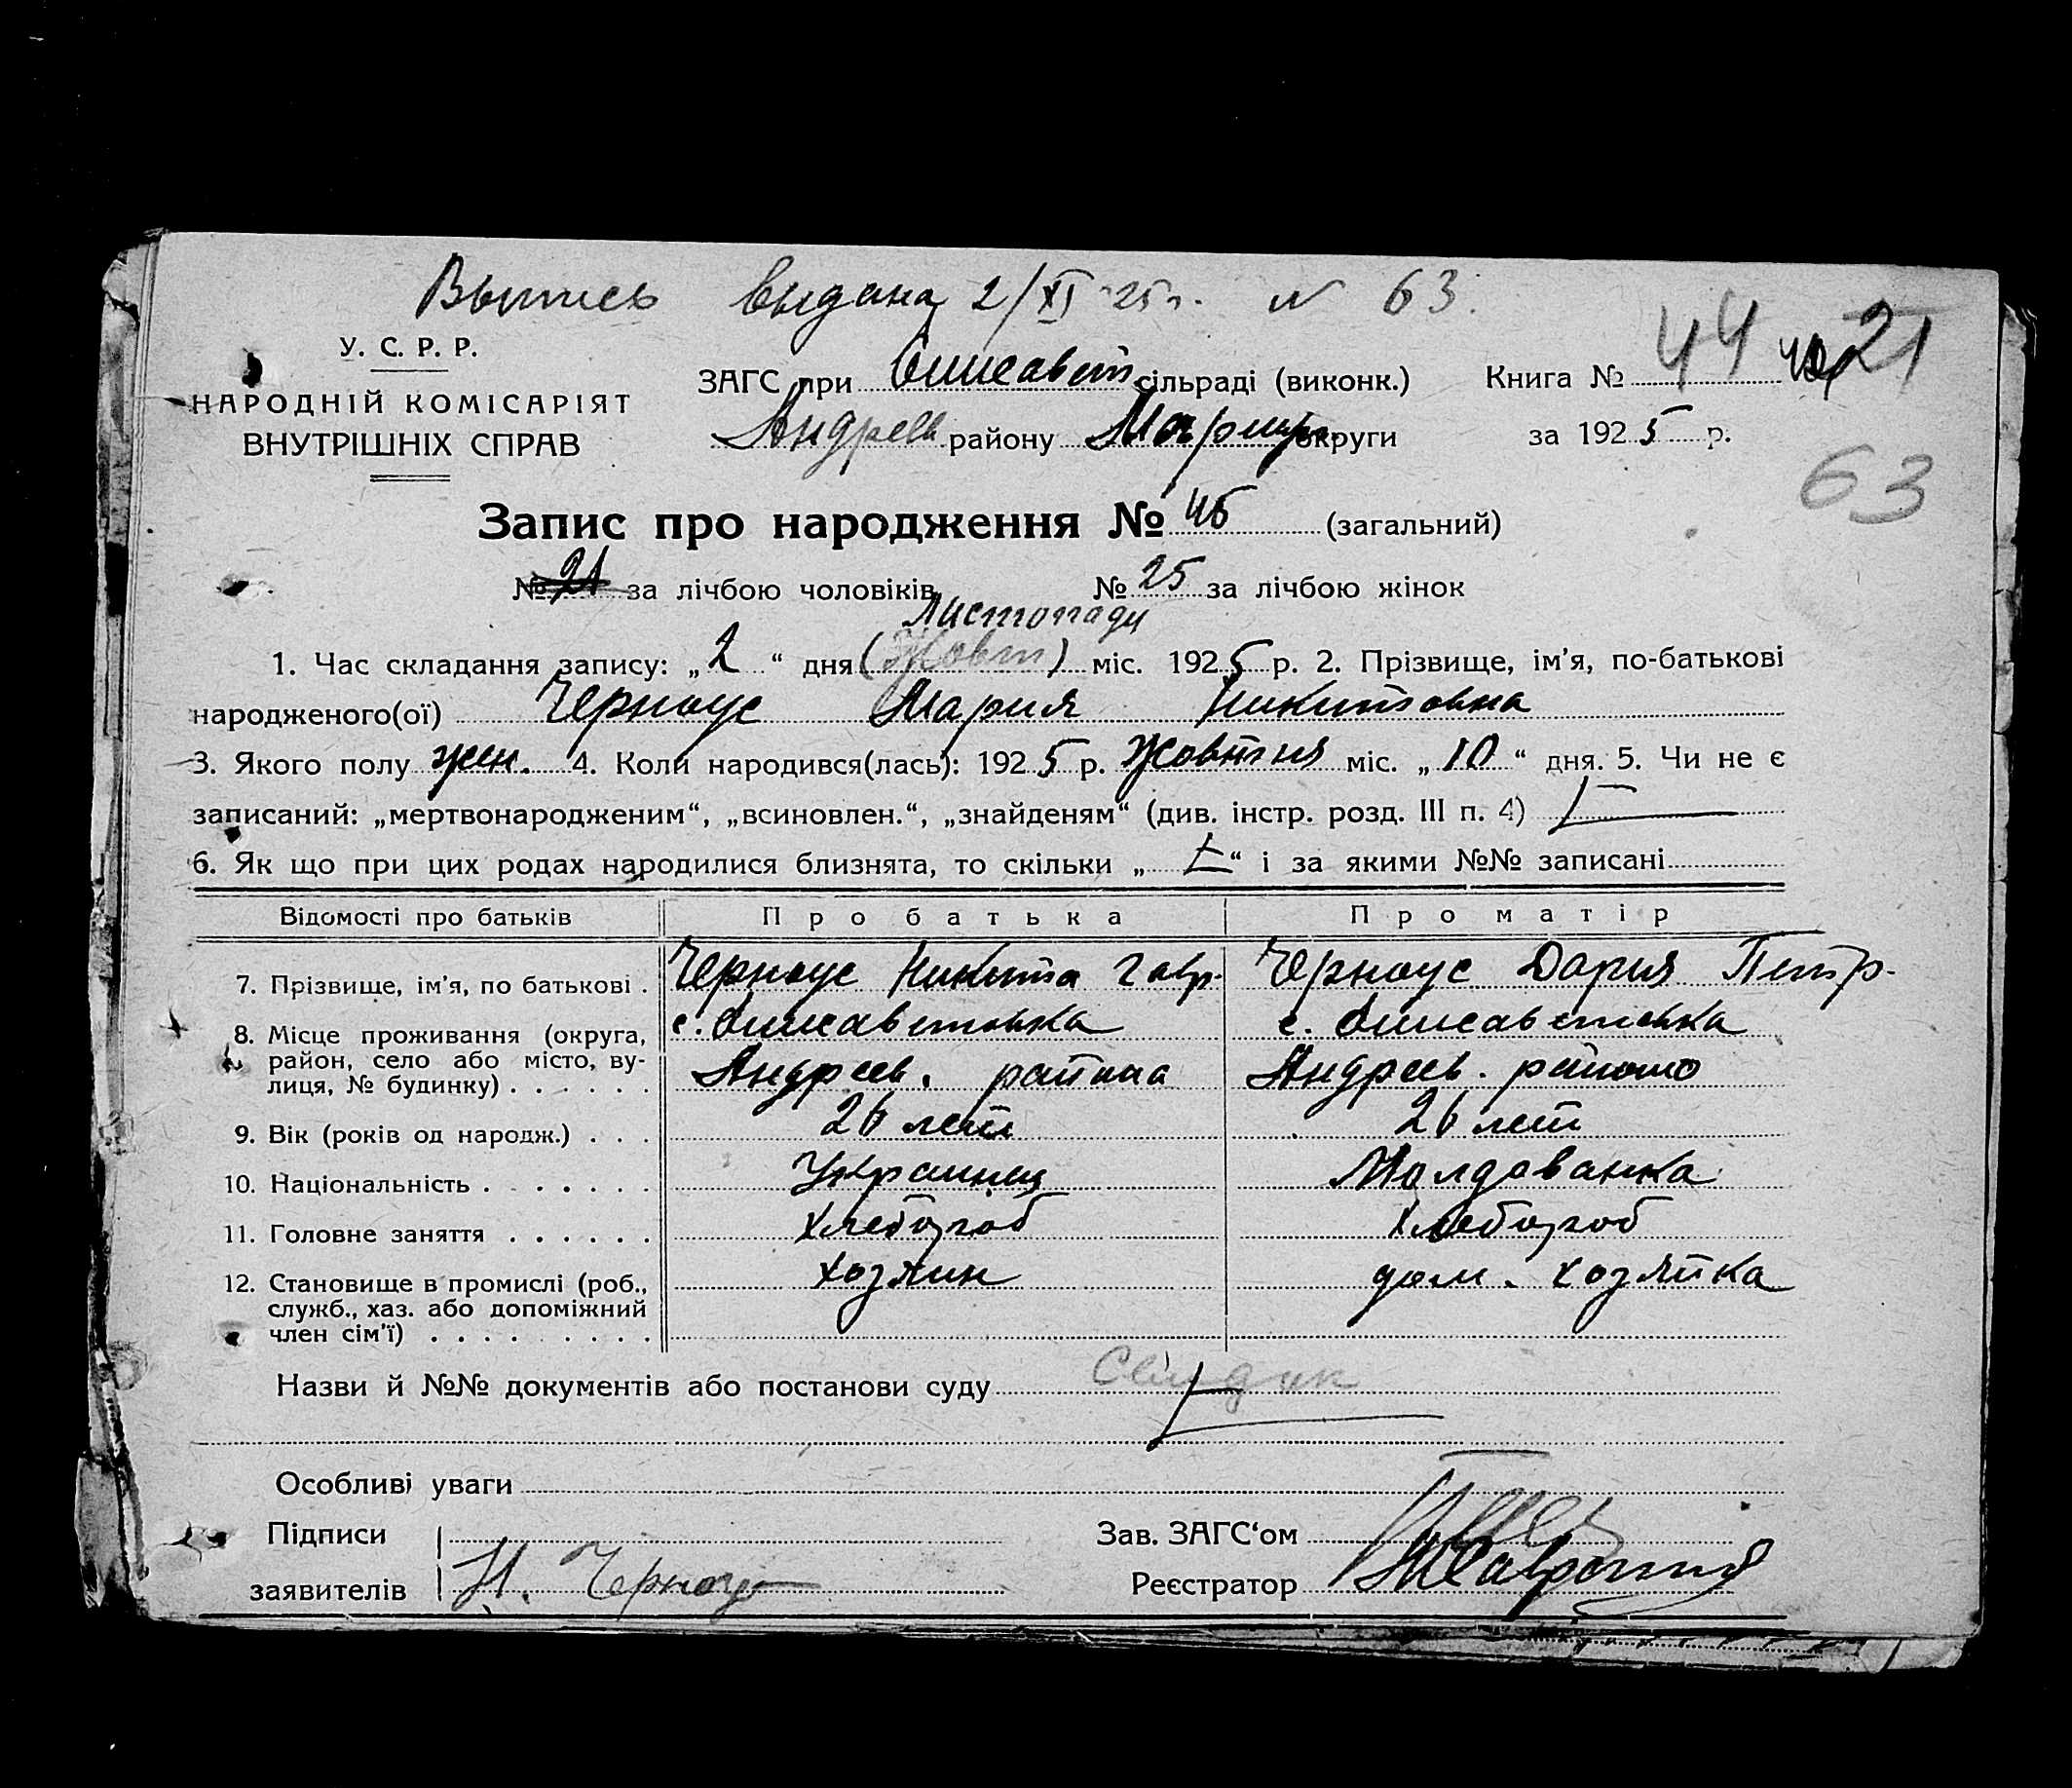 Выпись выдана 2/XI 25 г. № 63.
У. С. Р. Р.
НАРОДНІЙ КОМІСАРІЯТ
ВНУТРІШНІХ СПРАВ
ЗАГС при Елисавет. сільраді (виконк.)
Андреев району Мариуп. округи
Книга № 44 21
за 1925 р.
63
Запис про народження № 46 (загальний)
№ 21 за лічбою чоловіків № 25 за лічбою жінок
Листопаду
1. Час складання запису: „2“ дня (Жовт) міс. 1925 р. 2. Прізвище, ім’я, по-батькові
народженого(ої) Черноус Мария Никитовна
3. Якого полу жен. 4. Коли народився(лась): 1925 р. Жовтня міс. „10“ дня. 5. Чи не є
записаний: „мертвонародженим“, „всиновлен.“, „знайденям“ (див. інстр. розд. III п. 4)
6. Як що при цих родах народилися близнята, то скільки „ “ і за якими №№ записані
Відомості про батьків Про батька Про матір
7. Прізвище, ім’я, по батькові . Черноус Никита Гавр. Черноус Дария Петр.
8. Місце проживання (округа, район, село або місто, вулиця, № будинку) . . . . . . с. Елисаветовка с. Елисаветовка
Андреев. района Андреев. району
9. Вік (років од народж.) . . . 26 лет 26 лет
10. Національність . . . . . . . Украинец Молдованка
11. Головне заняття . . . . . . Хлебороб Хлебороб
12. Становище в промислі (роб., служб., хаз. або допоміжний член сім’ї) . . . . . . . . . Хозяин дом. хозяйка
Назви й №№ документів або постанови суду
Особливі уваги
Підписи
заявителів Н. Черноус
Зав. ЗАГС‘ом
Реєстратор